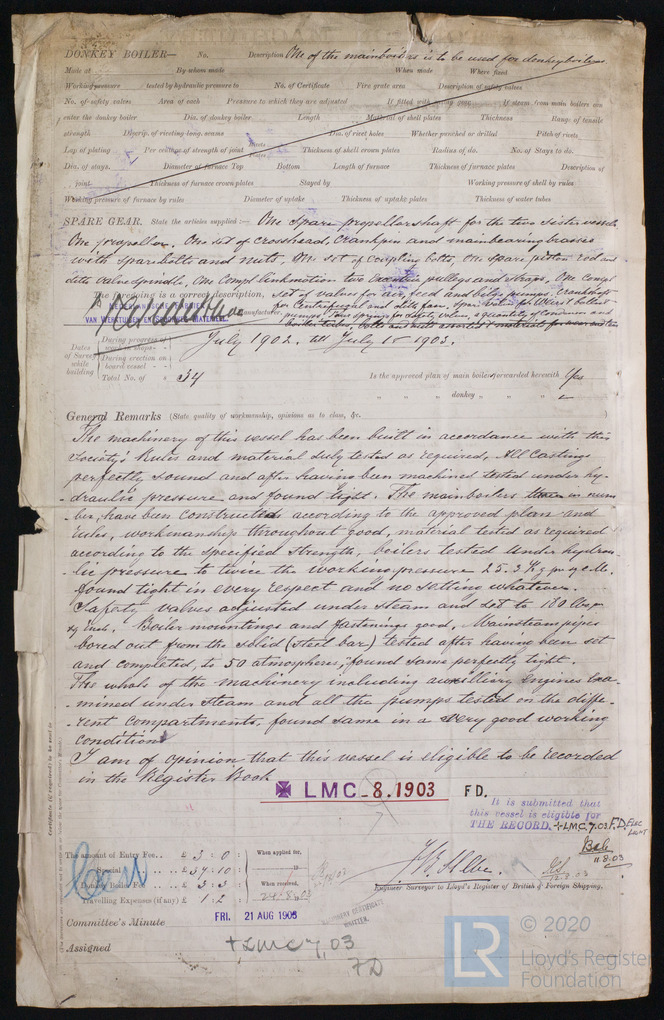 DONKEY BOILER— No. Description One of the mainboilers is to be used for donkeyboilers
Made at By whom made When made Where fixed
Working pressure tested by hydraulic pressure to No. of Certificate Fire grate area Description of safety valves
No. of safety valves Area of each Pressure to which they are adjusted If fitted with easing gear If steam from main boilers can
enter the donkey boiler Dia. of donkey boiler Length Material of shell plates Thickness Range of tensile
strength Descrip. of riveting long. seams Dia. of rivet holes Whether punched or drilled Pitch of rivets
Lap of plating Per centage of strength of joint Rivets Plates Thickness of shell crown plates Radius of do. No. of Stays to do.
Dia. of stays. Diameter of furnace Top Bottom Length of furnace Thickness of furnace plates Description of
joint Thickness of furnace crown plates Stayed by Working pressure of shell by rules
Working pressure of furnace by rules Diameter of uptake Thickness of uptake plates Thickness of water tubes
SPARE GEAR. State the articles supplied:— One spare propellershaft for the two sister vessels
One propellor. One set of crosshead, crankpin and mainbearing brasses
with spare bolts and nuts, One set of coupling bolts, one spare piston rod and
ditto valve spindle, one compl linkmotion two Excentric pulleys and straps, one compl
The foregoing is a correct description, set of valves for air, feed and bilge pumps, crankshaft
for Centrifugal and ditto fan, spare
VAN WERKTUIGEN EN Manufacturer.
pumps, two springs for safety valves, a quantity of condenser and
boiler tubes, bolts and nuts assorted
Dates of Survey while building
During progress of work in shops - -
During erection on board vessel - - -
Total No. of
July 1902. till July 15 1903.
34
Is the approved plan of main boiler forwarded herewith Yes
" " " donkey " " "
General Remarks (State quality of workmanship, opinions as to class, &c.
The machinery of this vessel has been built in accordance with this
Society's Rules and material duly tested as required, All Castings
perfectly sound and after having been machined tested under hy-
-draulic pressure and found tight. The mainboilers three in num
ber, have been constructed according to the approved plan and
rules, workmanship throughout good, material tested as required
according to the specified strength, boilers tested under hydrau-
-lic pressure to twice the workingpressure 25.3 Kg pr q c.M.
found tight in every respect and no setting whatever.
Safety valves adjusted under steam and set to 180 lbs p
sq inch. Boiler mountings and fastenings good, Mainsteampipes
bored out from the solid (steel bar) tested after having been set
and completed, to 50 atmospheres, found same perfectly tight.
The whole of the machinery including auxilliary Engines Exa-
-mined under steam and all the pumps tested on the diffe-
-rent compartments, found same in a very good working
condition
I am of opinion that this vessel is eligible to be recorded
in the Register Book
✠ LMC 8.1903 F D.
It is submitted that
this vessel is eligible for
THE RECORD. +LMC 7.03 F.D. Elec Light
11.8.03
The amount of Entry Fee.. £ 3 : 0 : When applied for,
Special .. £ 37 : 10 :
Donkey Boiler Fee .. £ 3 : 3 When received,
Travelling Expenses (if any) £ 1 : 2
Engineer Surveyor to Lloyd's Register of British & Foreign Shipping.
Committee's Minute FRI. 21 AUG 1903
MACHINERY CERTIFICATE
WRITTEN.
Assigned + LMC 7,03
FD
Certificate (if required) to be sent to
LR
© 2020
Lloyd's Register
Foundation